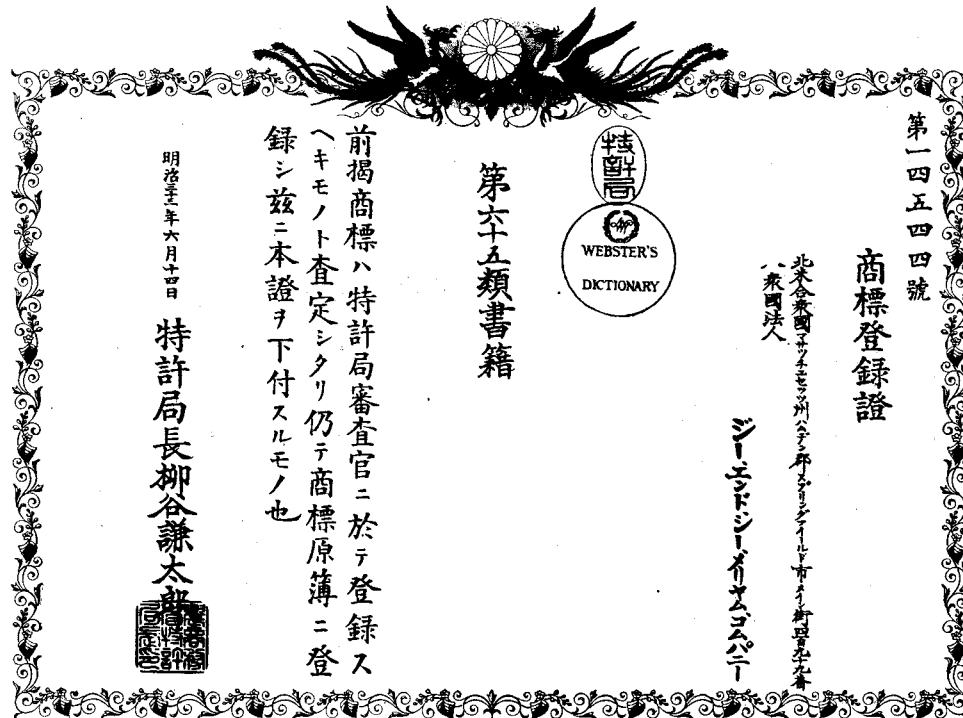 第一四五四四號
商標登録證
北米合衆國マサッチユセッツ州ハムデン郡スプリングフィールド市メイン街四百九十九番
八衆國法人
ジー、エンドシー、メリヤム、コムパニー
特許局
WEBSTER'S
DICTIONARY
第六十五類書籍
前揭商標ハ特許局審査官ニ於テ登録ス
ヘキモノト査定シタリ仍テ商標原簿ニ登
録シ茲ニ本證ヲ下付スルモノ也
明治三十三年六月十四日 特許局長柳谷謙太郎